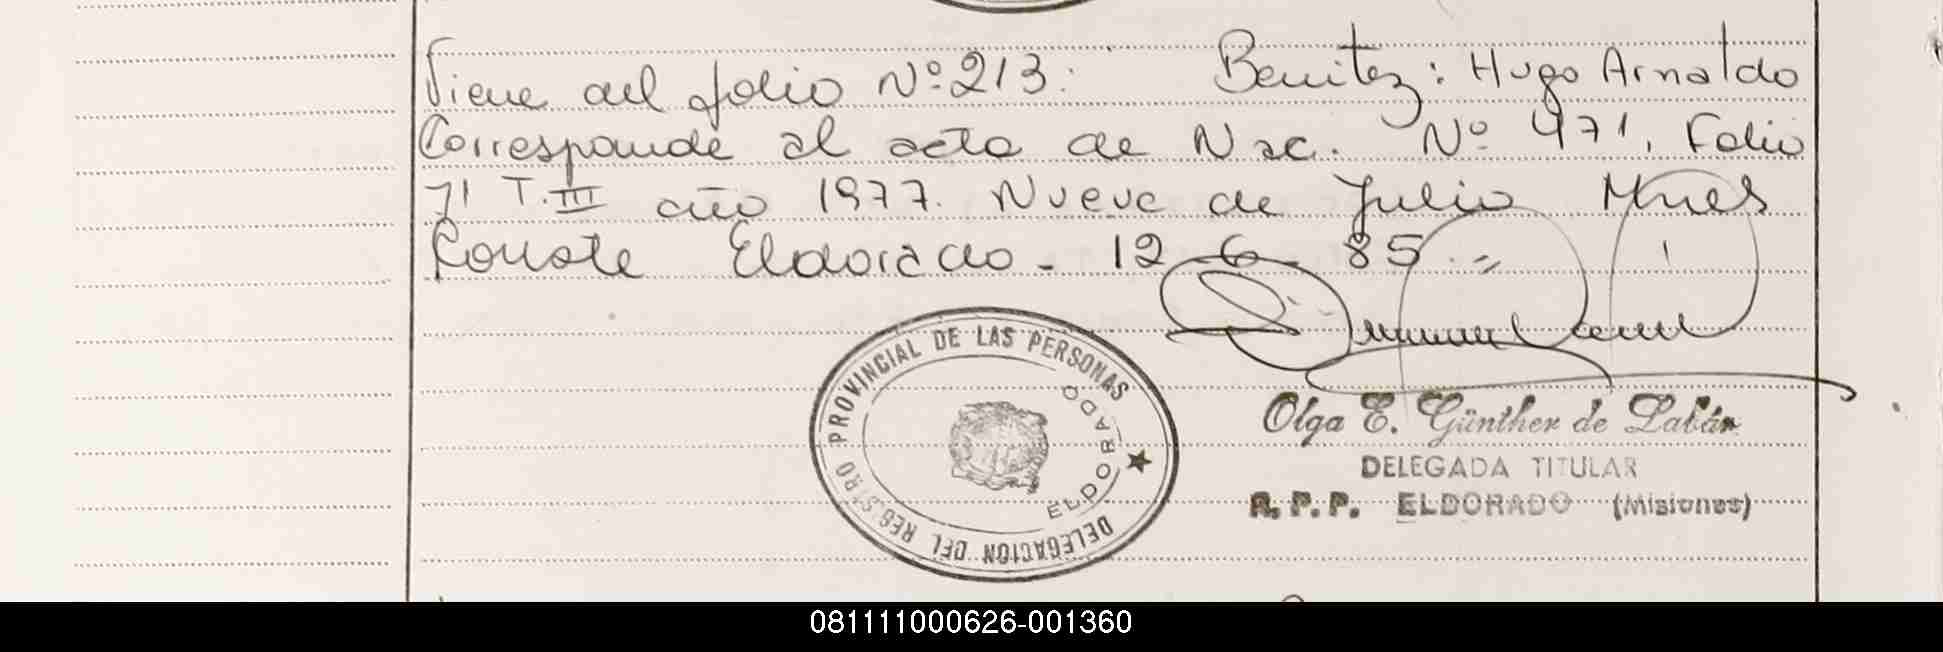 Viene del folio Nº 213. Benitez: Hugo Arnaldo
Corresponde al acta de Nac. Nº 471, Folio
71 T. III año 1977. Nueve de Julio Mnes
Conste Eldorado - 12-6-85.-
DELEGACION DEL REGISTRO PROVINCIAL DE LAS PERSONAS
ELDORADO
Olga E. Günther de Labán
DELEGADA TITULAR
R. P. P. ELDORADO (Misiones)
081111000626-001360